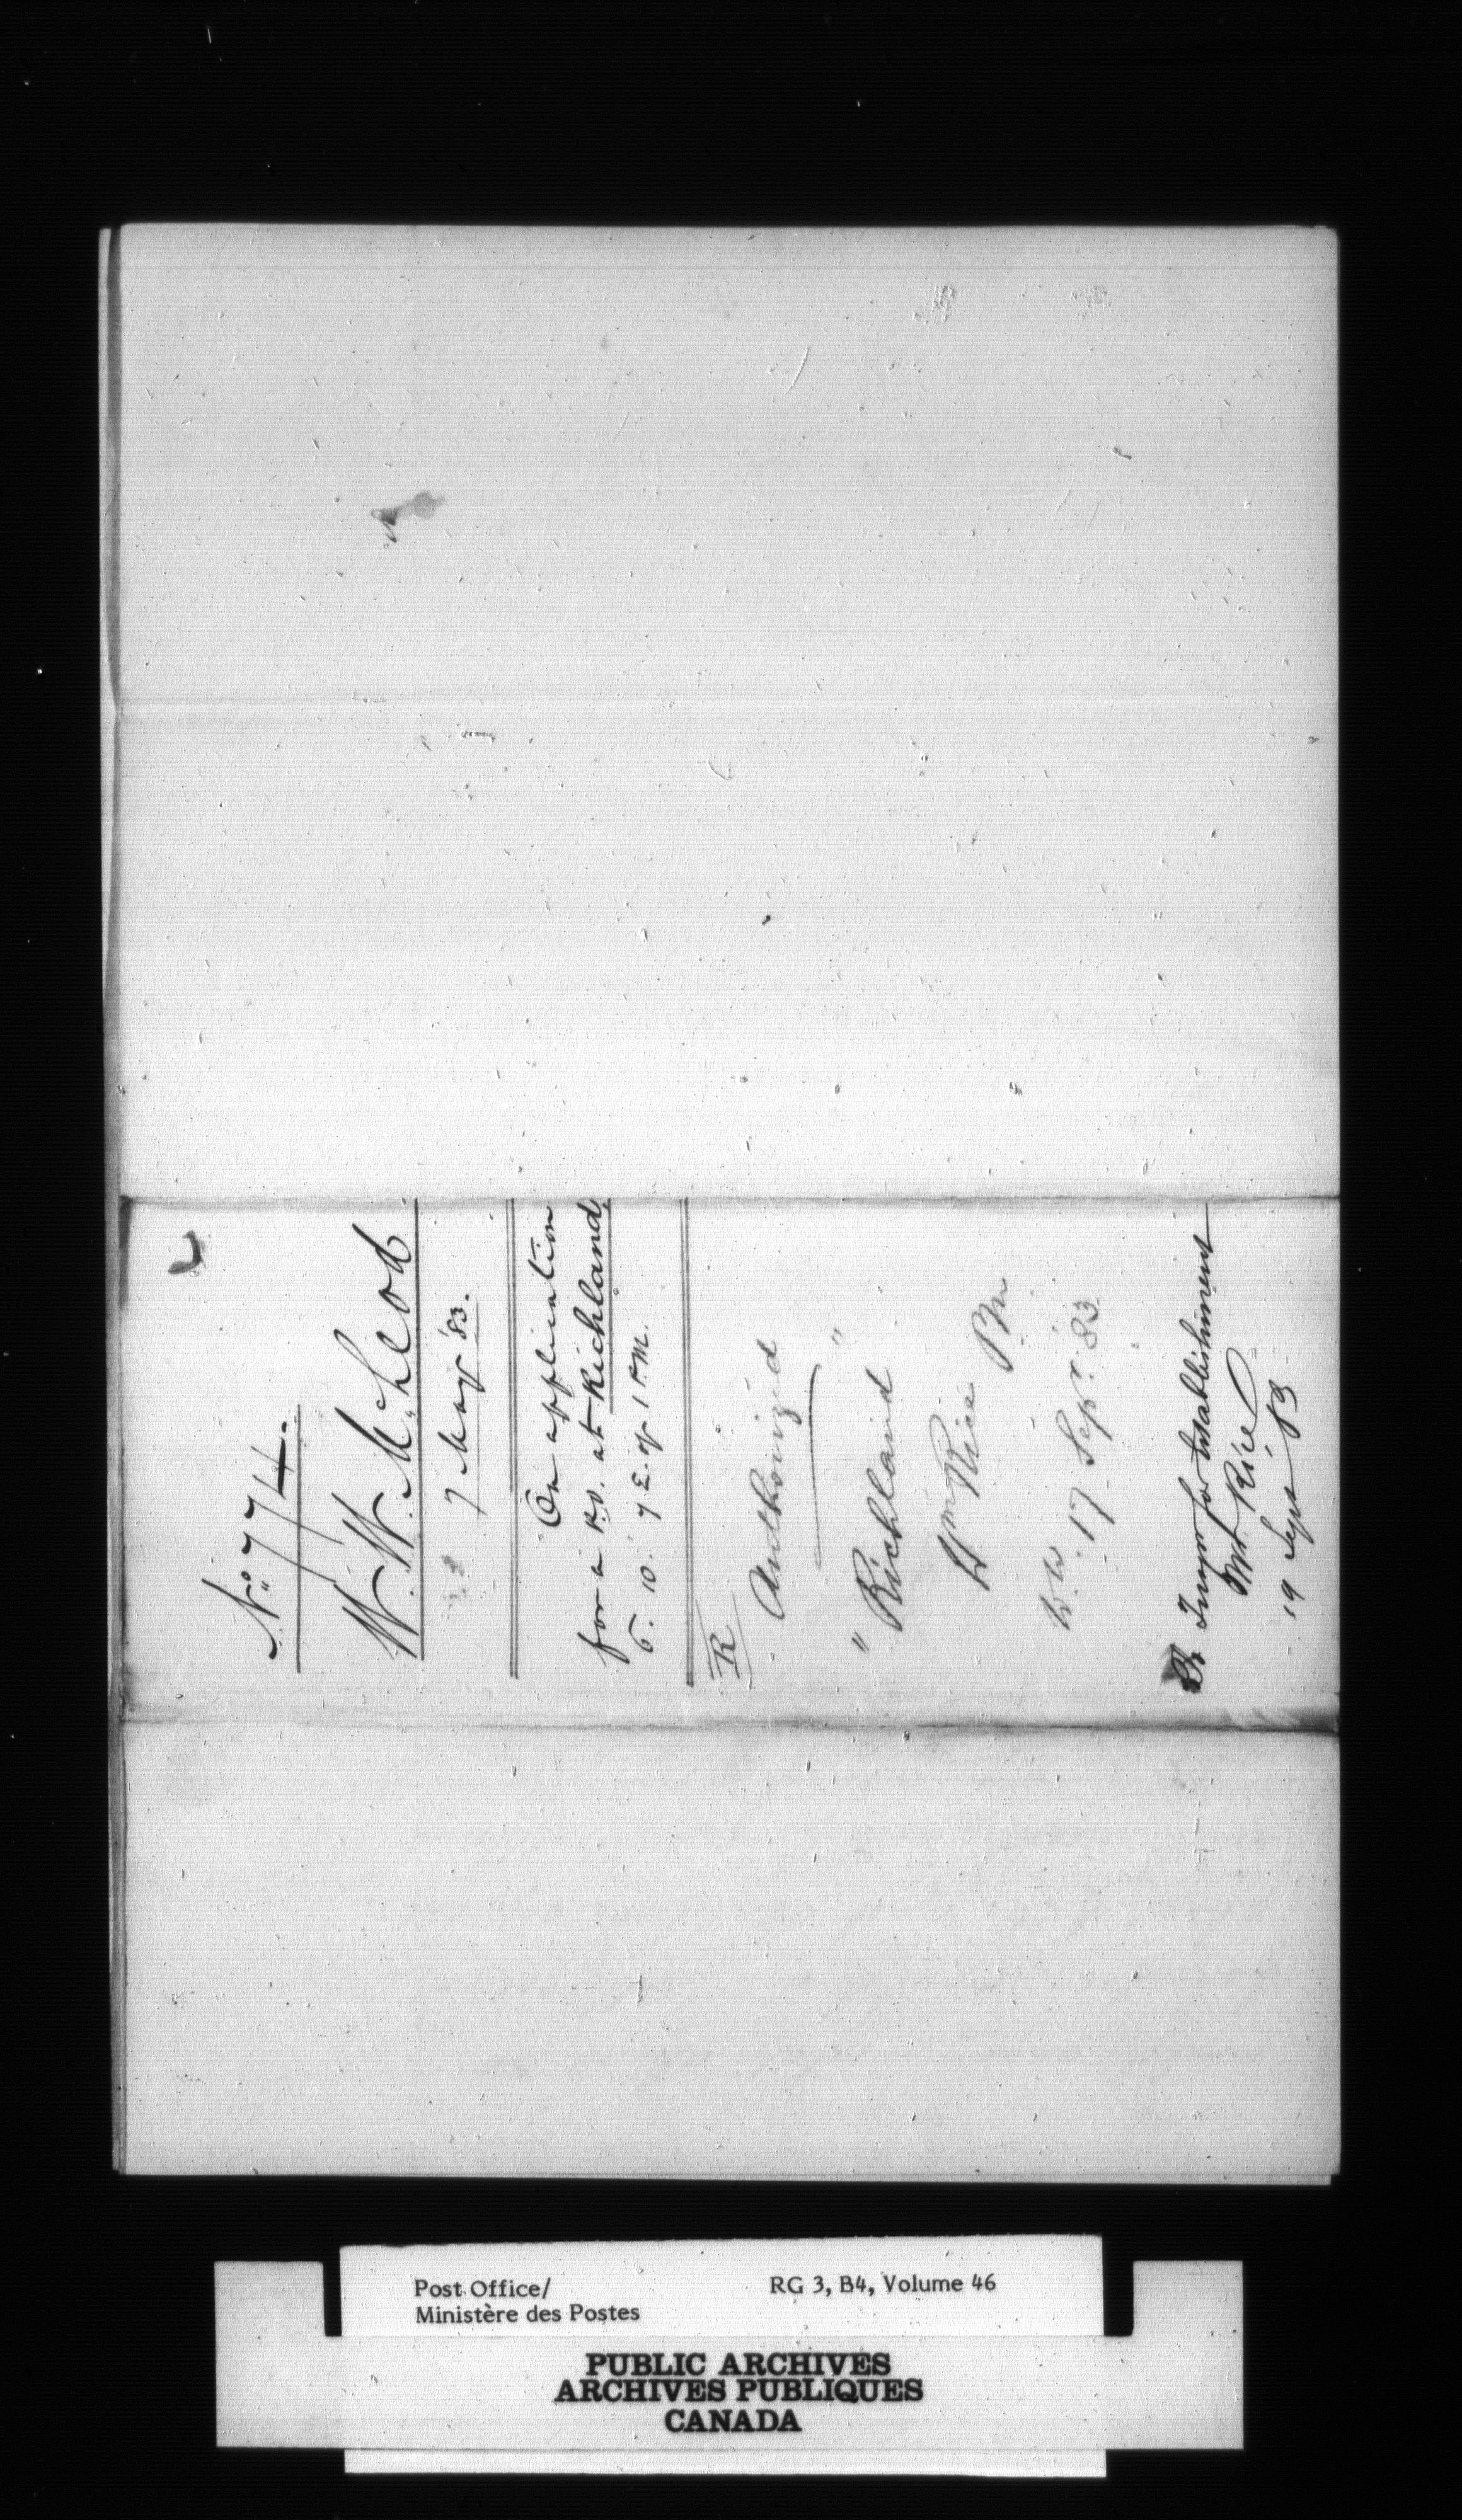 No. 774.
W. W. McLeod
7 May '83.
On application
for a P.O. at Richland
6. 10. 7 E. of 1 P.M.
R
Authorized
" Richland "
Wm Rice PM
17 Sepr. 83
Inspr for Establishment
Wm Rice
19 Sept 83
Post Office/
Ministère des Postes
RG 3, B4, Volume 46
PUBLIC ARCHIVES
ARCHIVES PUBLIQUES
CANADA